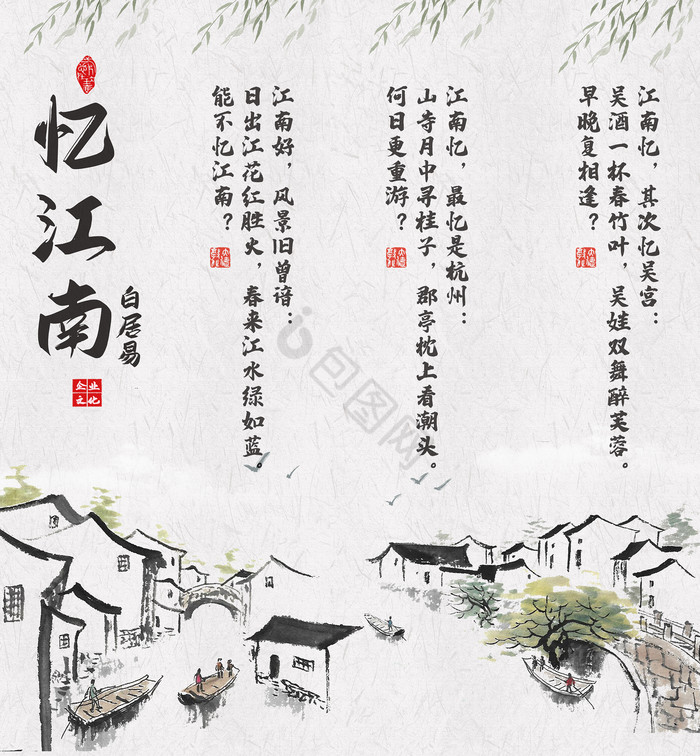 忆江南
白居易
企业
文化
江南好，风景旧曾谙：
日出江花红胜火，春来江水绿如蓝。
能不忆江南？
江南忆，最忆是杭州：
山寺月中寻桂子，郡亭枕上看潮头。
何日更重游？
江南忆，其次忆吴宫：
吴酒一杯春竹叶，吴娃双舞醉芙蓉。
早晚复相逢？
包图网